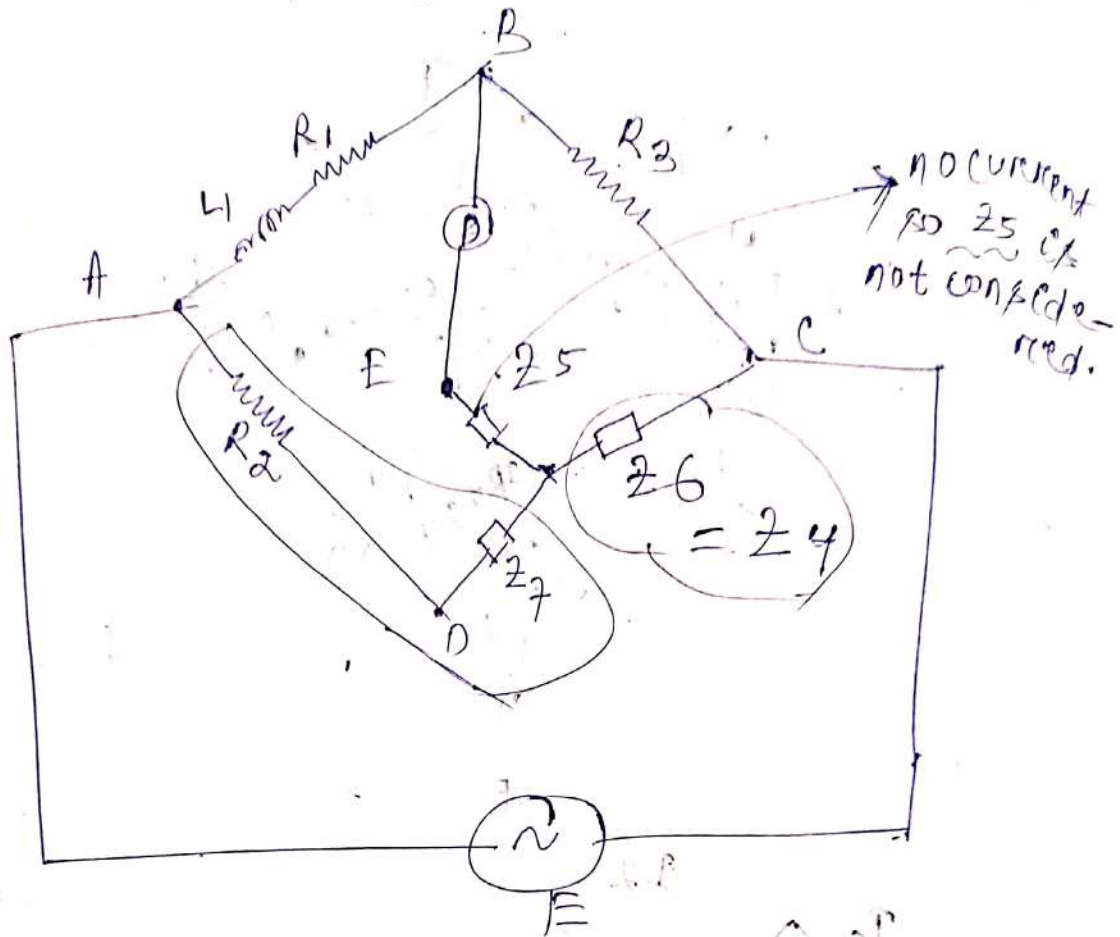 B
R1
R3
L1
no current
so Z5 is
not conside-
red.
A
C
E
Z5
D
R2
Z6
= Z4
Z7
D
~
E